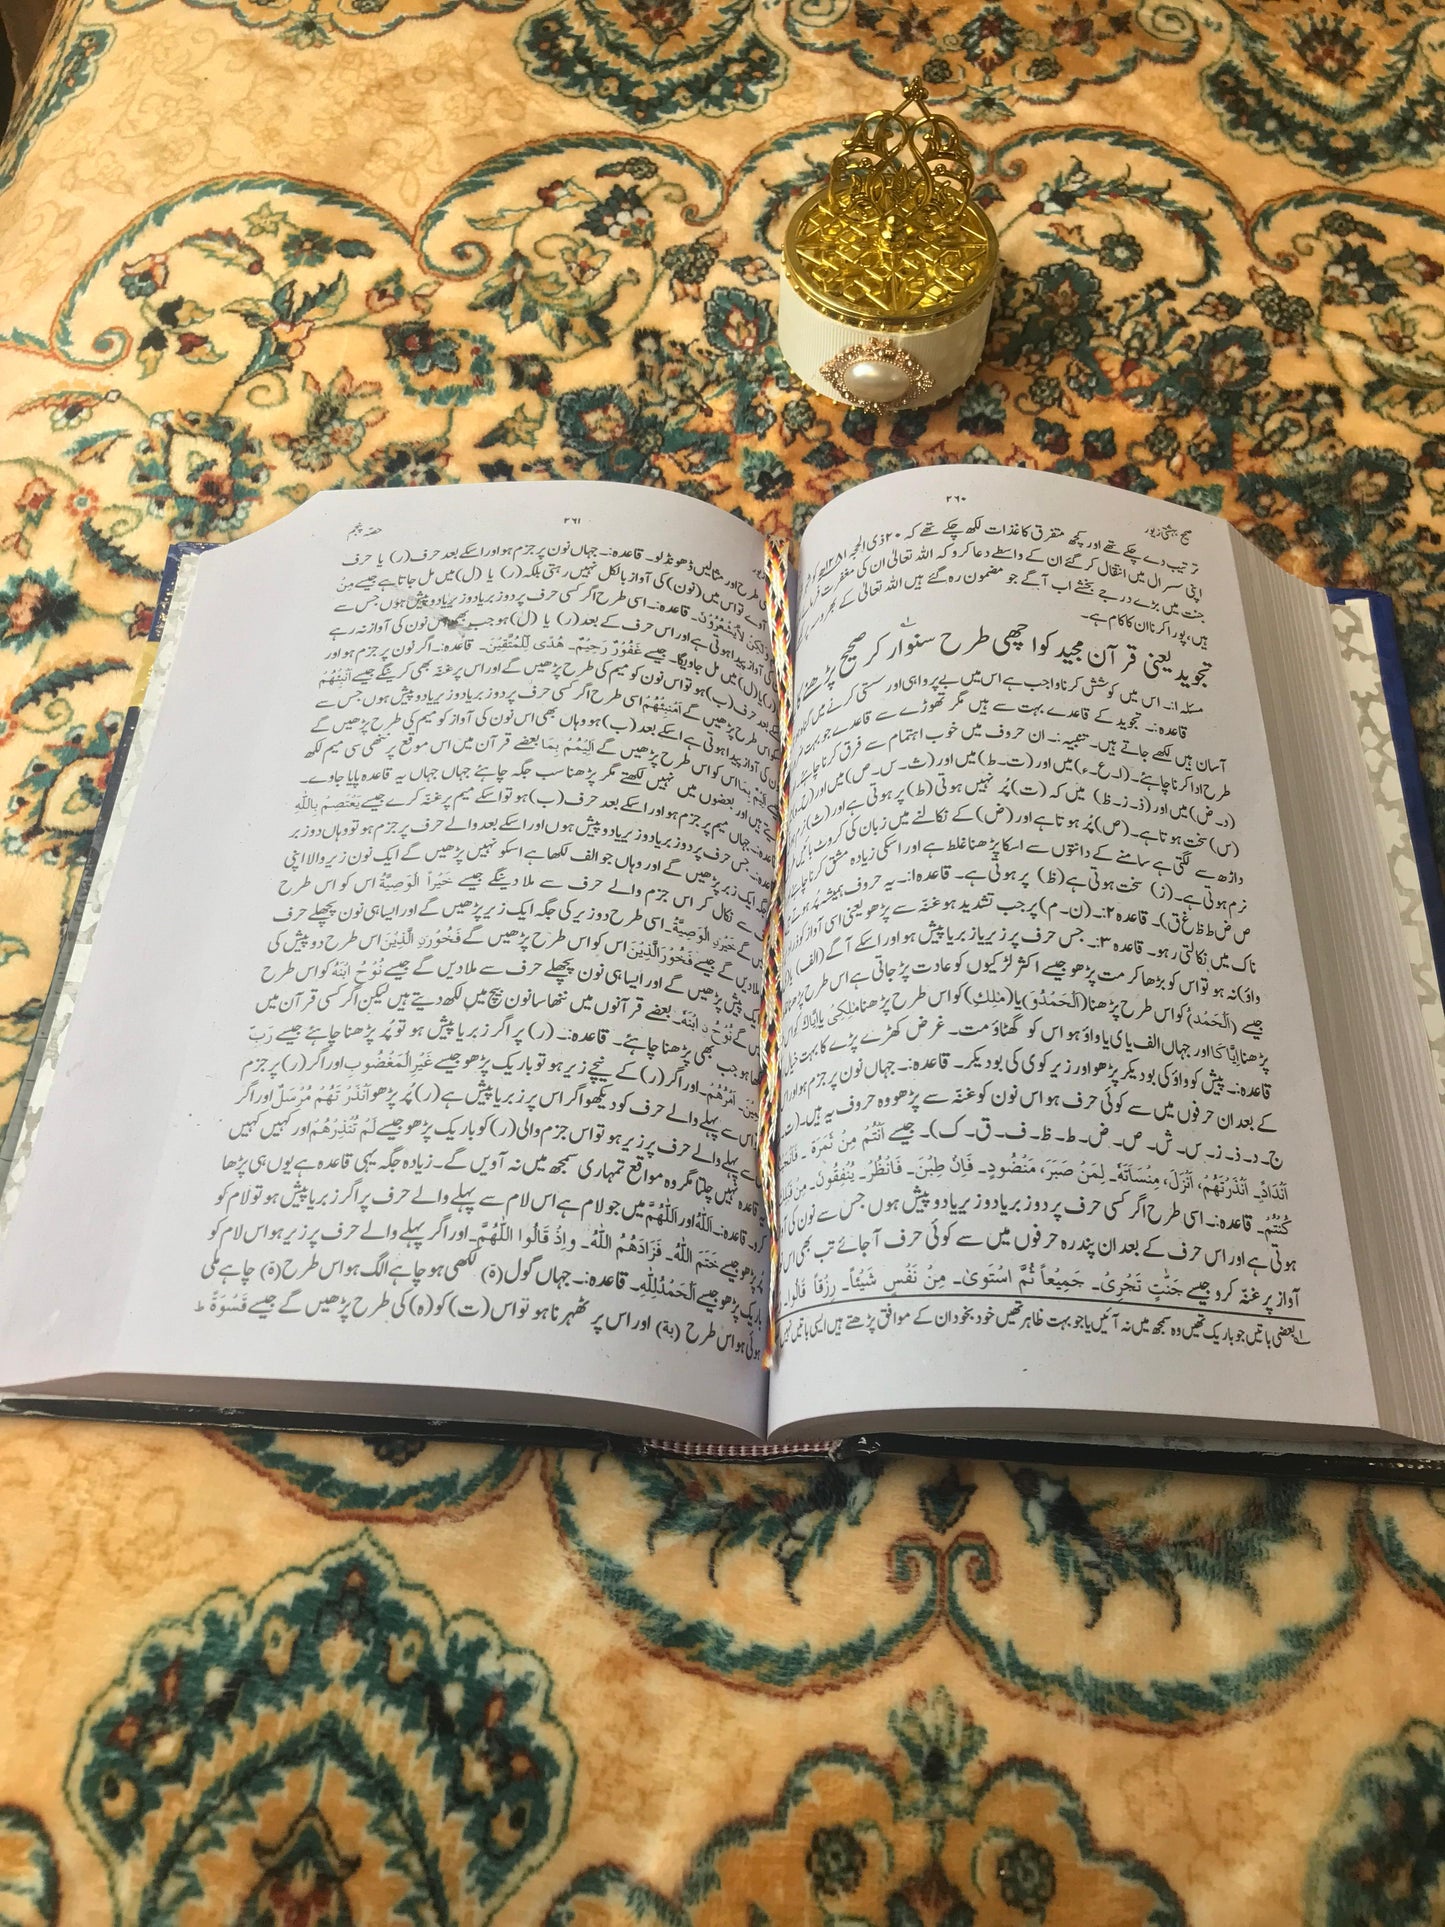 صحیح بہشتی زیور
۳۶۰
ترتیب دے چکے تھے اور کچھ متفرق کاغذات لکھ چکے تھے کہ ۲۰ ذی الحجہ ۱۲۸۱ھ کو
اپنی سسرال میں انتقال کر گئے ان کے واسطے دعا کرو کہ اللہ تعالیٰ ان کی مغفرت
جنت میں بڑے درجے بخشے اب آگے جو مضمون رہ گئے ہیں اللہ تعالیٰ کے بھروسہ
ہیں، پورا کرنا ان کا کام ہے۔
تجوید یعنی قرآن مجید کو اچھی طرح سنوار کر صحیح پڑھنے کا
مسئلہ ۱:۔ اس میں کوشش کرنا واجب ہے اس میں بے پرواہی اور سستی کرنے میں
قاعدہ:۔ تجوید کے قاعدے بہت سے ہیں مگر تھوڑے سے قاعدے جو بہت
آسان ہیں لکھے جاتے ہیں۔ تنبیہ:۔ ان حروف میں خوب اہتمام سے فرق کرنا چاہئے
طرح ادا کرنا چاہئے۔ (ا۔ع۔ء) میں اور (ت۔ط) میں اور (ث۔س۔ص) میں اور
(د۔ض) میں اور (ذ۔ز۔ظ) میں کہ (ت) پُر نہیں ہوتی (ط) پر ہوتی ہے اور (ث)
(س) سخت ہوتا ہے۔ (ص) پُر ہوتا ہے اور (ض) کے نکالنے میں زبان کی کروٹ
داڑھ سے لگتی ہے سامنے کے دانتوں سے اسکا پڑھنا غلط ہے اور اسکی زیادہ مشق کرنا چاہئے
نرم ہوتی ہے۔ (ز) سخت ہوتی ہے (ظ) پر ہوتی ہے۔ قاعدہ ۱:۔ یہ حروف ہمیشہ پُر
ص ض ط ظ غ ق)۔ قاعدہ ۲:۔ (ن۔م) پر جب تشدید ہو غنّہ سے پڑھو یعنی اسی آواز کو
ناک میں نکالتی رہو۔ قاعدہ ۳:۔ جس حرف پر زبر یا زیر یا پیش ہو اور اسکے آگے (الف)
واؤ) نہ ہو تو اس کو بڑھا کر مت پڑھو جیسے اکثر لڑکیوں کو عادت پڑ جاتی ہے اس طرح پڑھنا
جیسے (اَلْحَمْدُ) کو اس طرح پڑھنا (اَلْحَمْدُوْ) یا (مٰلِكِ) کو اس طرح پڑھنا مٰلِكِىْ یا اِيَّاكَ کو
پڑھنا اِيَّاكَا اور جہاں الف یا ی یا واؤ ہو اس کو گھٹاؤ مت۔ غرض کھڑے پڑے کا بہت خیال
قاعدہ:۔ پیش کو واؤ کی بو دیکر پڑھو اور زیر کو ی کی بو دیکر۔ قاعدہ:۔ جہاں نون پر جزم ہو اور
کے بعد ان حرفوں میں سے کوئی حرف ہو اس نون کو غنّہ سے پڑھو وہ حروف یہ ہیں۔
ج۔ د۔ ذ۔ ز۔ س۔ ش۔ ص۔ ض۔ ط۔ ظ۔ ف۔ ق۔ ک)۔ جیسے اَنْتُمْ مِنْ ثَمَرَةٍ۔
اَنْدَادًا۔ اَنْذَرْتَهُمْ، اَنْزَلَ، مِنْسَاَتَهٗ۔ لِمَنْ صَبَرَ، مَنْضُوْدٍ۔ فَاِنْ طِبْنَ۔ فَانْظُرْ۔ يُنْفِقُوْنَ۔
كُنْتُمْ۔ قاعدہ:۔ اسی طرح اگر کسی حرف پر دو زبر یا دو زیر یا دو پیش ہوں جس سے نون کی
ہوتی ہے اور اس حرف کے بعد ان پندرہ حرفوں میں سے کوئی حرف آجائے تب بھی اس
آواز پر غنّہ کرو جیسے جَنّٰتٍ تَجْرِىْ۔ جَمِيْعاً ثُمَّ اسْتَوٰى۔ مِنْ نَفْسٍ شَيْئاً۔ رِزْقًا قَالُوْا۔
بعضی باتیں جو باریک تھیں وہ سمجھ میں نہ آئیں یا جو بہت ظاہر تھیں خود بخود ان کے موافق پڑھتے ہیں ایسی باتیں
۳۶۱
حصّہ پنجم
طرح اور مثالیں ڈھونڈ لو۔ قاعدہ:۔ جہاں نون پر جزم ہو اور اسکے بعد حرف (ر) یا حرف
آوے تو اس میں (نون) کی آواز بالکل نہیں رہتی بلکہ (ر) یا (ل) میں مل جاتا ہے جیسے مِنْ
وَلٰكِنْ لَّا يَشْعُرُوْنَ۔ قاعدہ:۔ اسی طرح اگر کسی حرف پر دو زبر یا دو زیر یا دو پیش ہوں جس سے
آواز پیدا ہوتی ہے اور اس حرف کے بعد (ر) یا (ل) ہو جب بھی اس نون کی آواز نہ رہے
(ر) یا (ل) میں مل جاویگا۔ جیسے غَفُوْرٌ رَحِيْمٌ۔ هُدًى لِّلْمُتَّقِيْنَ۔ قاعدہ:۔ اگر نون پر جزم ہو اور
بعد حرف (ب) ہو تو اس نون کو میم کی طرح پڑھیں گے اور اس پر غنّہ بھی کرینگے جیسے اَنْبِئْهُمْ
کو اس طرح پڑھیں گے اَمْبِئْهُمْ اسی طرح اگر کسی حرف پر دو زبر یا دو زیر یا دو پیش ہوں جس سے
کی آواز پیدا ہوتی ہے اسکے بعد (ب) ہو وہاں بھی اس نون کی آواز کو میم کی طرح پڑھیں گے
جیسے اَلِيْمٌ بِمَا اس کو اس طرح پڑھیں گے اَلِيْمُمْ بِمَا بعضے قرآن میں اس موقع پر ننھی سی میم لکھ
ہیں اور بعضوں میں نہیں لکھتے مگر پڑھنا سب جگہ چاہئے جہاں جہاں یہ قاعدہ پایا جاوے۔
قاعدہ:۔ جہاں میم پر جزم ہو اور اسکے بعد حرف (ب) ہو تو اسکے میم پر غنّہ کرے جیسے يَعْتَصِمْ بِاللّٰهِ
قاعدہ:۔ جس حرف پر دو زبر یا دو زیر یا دو پیش ہوں اور اسکے بعد والے حرف پر جزم ہو تو وہاں دو زبر
جگہ ایک زبر پڑھیں گے اور وہاں جو الف لکھا ہے اسکو نہیں پڑھیں گے ایک نون زیر والا اپنی
سے نکال کر اس جزم والے حرف سے ملا دینگے جیسے خَيْراً الْوَصِيَّةُ اس کو اس طرح
گے خَيْرَنِ الْوَصِيَّةُ۔ اسی طرح دو زیر کی جگہ ایک زیر پڑھیں گے اور ایسا ہی نون پچھلے حرف
ملادیں گے جیسے فَخُوْرِ الَّذِيْنَ اس کو اس طرح پڑھیں گے فَخُوْرِنِ الَّذِيْنَ اس طرح دو پیش کی
ایک پیش پڑھیں گے اور ایسا ہی نون پچھلے حرف سے ملادیں گے جیسے نُوْحُ ابْنَهٗ کو اس طرح
گے نُوْحُ نِ ابْنَهٗ۔ بعضے قرآنوں میں ننھا سا نون بیچ میں لکھ دیتے ہیں لیکن اگر کسی قرآن میں
لکھا ہو جب بھی پڑھنا چاہئے۔ قاعدہ:۔ (ر) پر اگر زبر یا پیش ہو تو پُر پڑھنا چاہئے جیسے رَبِّ
اَمْرُهُمْ۔ اور اگر (ر) کے نیچے زیر ہو تو باریک پڑھو جیسے غَيْرِ الْمَغْضُوْبِ اور اگر (ر) پر جزم
اس سے پہلے والے حرف کو دیکھو اگر اس پر زبر یا پیش ہے (ر) پُر پڑھو اَنْذَرْتَهُمْ مُرْسَلٌ اور اگر
سے پہلے والے حرف پر زیر ہو تو اس جزم والی (ر) کو باریک پڑھو جیسے لَمْ تُنْذِرْهُمْ اور کہیں کہیں
یہ قاعدہ نہیں چلتا مگر وہ مواقع تمہاری سمجھ میں نہ آویں گے۔ زیادہ جگہ یہی قاعدہ ہے یوں ہی پڑھا
کرو۔ قاعدہ:۔ اَللّٰهُ اور اَللّٰهُمَّ میں جو لام ہے اس لام سے پہلے والے حرف پر اگر زبر یا پیش ہو تو لام کو
پُر پڑھو جیسے خَتَمَ اللّٰهُ۔ فَزَادَهُمُ اللّٰهُ۔ وَاِذْ قَالُوا اللّٰهُمَّ۔ اور اگر پہلے والے حرف پر زیر ہو اس لام کو
باریک پڑھو جیسے اَلْحَمْدُ لِلّٰهِ۔ قاعدہ:۔ جہاں گول (ة) لکھی ہو چاہے الگ ہو اس طرح (ة) چاہے ملی
ہوئی ہو اس طرح (بة) اور اس پر ٹھہرنا ہو تو اس (ت) کو (ہ) کی طرح پڑھیں گے جیسے قَسْوَةً ط